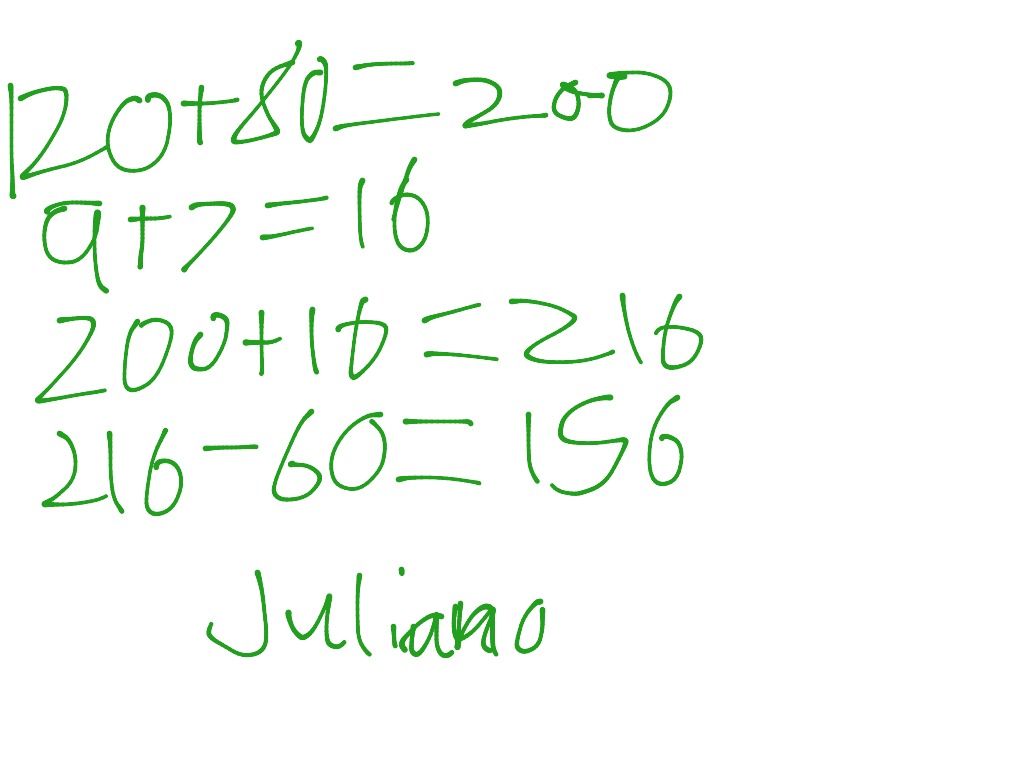 120+80=200
9+7=16
200+16=216
216-60=156
Juliano